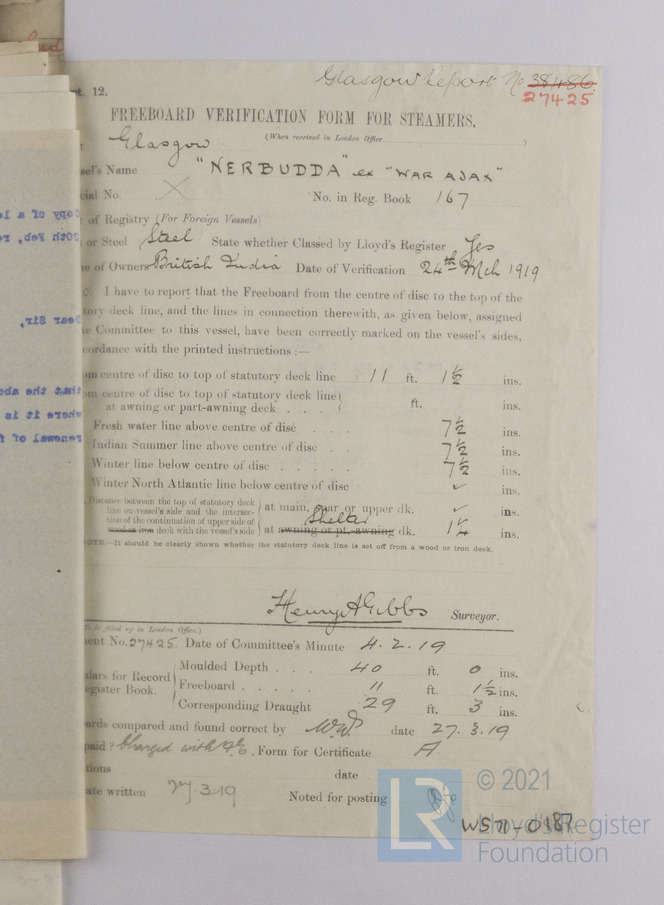 Glasgow Report No 38486
27425
t. 12.
FREEBOARD VERIFICATION FORM FOR STEAMERS.
(When received in London Office )
Glasgow
sel's Name "NERBUDDA" ex "WAR AJAX"
cial No. X No. in Reg. Book 167
of Registry (For Foreign Vessels)
or Steel Steel State whether Classed by Lloyd's Register Yes
e of Owners British India Date of Verification 24th Mch 1919
I have to report that the Freeboard from the centre of disc to the top of the
tory deck line, and the lines in connection therewith, as given below, assigned
e Committee to this vessel, have been correctly marked on the vessel's sides,
cordance with the printed instructions :—
om centre of disc to top of statutory deck line 11 ft. 1½ ins.
om centre of disc to top of statutory deck line
at awning or part-awning deck . . . ft. ins.
Fresh water line above centre of disc . . . 7½ ins.
Indian Summer line above centre of disc . . 7½ ins.
Winter line below centre of disc . . . . . 7½ ins.
Winter North Atlantic line below centre of disc ✓ ins.
Distance between the top of statutory deck
line on vessel's side and the intersec-
tion of the continuation of upper side of
wood or iron deck with the vessel's side
at main, spar or upper dk. ✓ ins.
Shelter
at awning or pt.-awning dk. 1¼ ins.
NOTE.—It should be clearly shown whether the statutory deck line is set off from a wood or iron deck.
Henry A Gibbs Surveyor.
(To be filled up in London Office.)
ment No. 27425. Date of Committee's Minute 4.2.19
ulars for Record
egister Book.
Moulded Depth . . . 40 ft. 0 ins.
Freeboard . . . . . 11 ft. 1½ ins.
Corresponding Draught 29 ft. 3 ins.
ards compared and found correct by date 27.3.19
paid ? Charged with F.E. Form for Certificate A
tions date
ate written 3.19 Noted for posting
WS71-0187
© 2021
Lloyd's Register
Foundation
LR
Copy of a le
20th Feb, re
Dear Sir,
that the abo
where it is
renewal of f